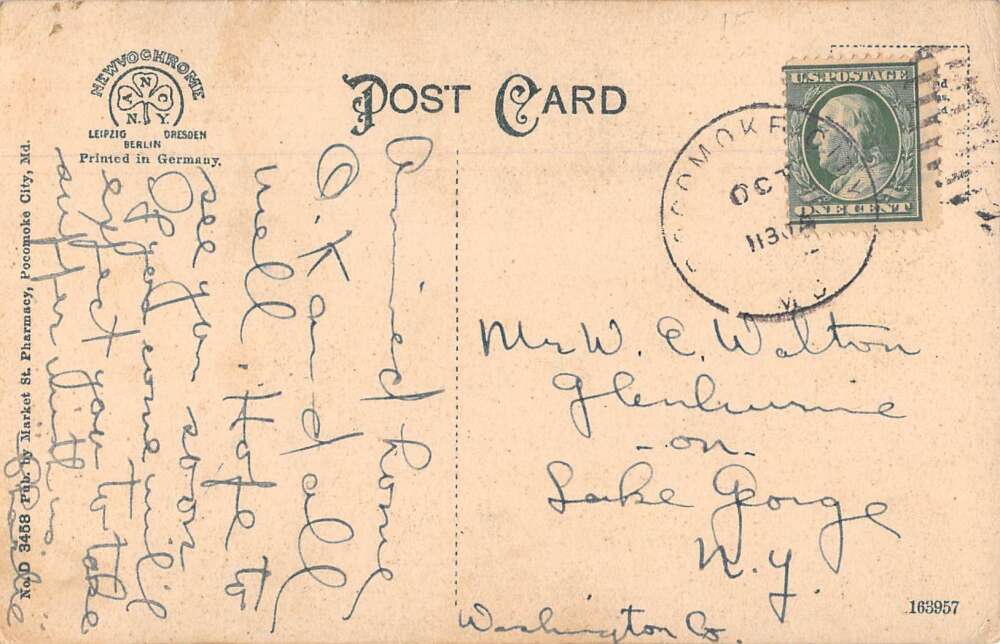 NEWVOCHROME
A N C
N.Y.
LEIPZIG DRESDEN
BERLIN
Printed in Germany.
POST CARD
U.S. POSTAGE
ONE CENT
POCOMOKE
OCT
1130
MD
Arrived home
O.K and all
well. Hope to
see you soon
If you come will
expect you to take
supper with us.
Mr W. E. Walton
Glenburnie
-on-
Lake George
N.Y.
Washington Co.
No. D 3458 Pub. by Market St. Pharmacy, Pocomoke City, Md.
163957